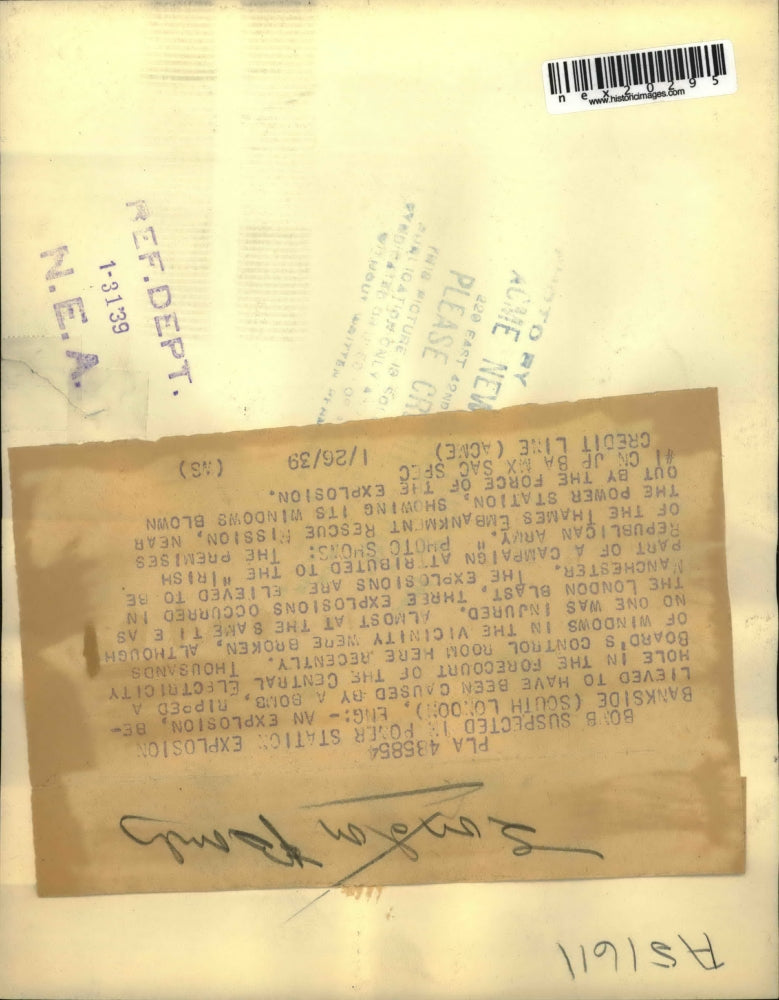 nex20295
www.historicimages.com
REF.DEPT.
1-3139
N.E.A.
PHOTO BY
ACME NEW
220 EAST 42ND
PLEASE CR
THIS PICTURE IS
PUBLICATION ONLY
SYNDICATED
WITHOUT WRITTEN
London Bombs
PLA 435854
BOMB SUSPECTED IN POWER STATION EXPLOSION
BANKSIDE (SOUTH LONDON), ENG:- AN EXPLOSION, BE-
LIEVED TO HAVE BEEN CAUSED BY A BOMB, RIPPED A
HOLE IN THE FORECOURT OF THE CENTRAL ELECTRICITY
BOARD'S CONTROL ROOM HERE RECENTLY. THOUSANDS
OF WINDOWS IN THE VICINITY WERE BROKEN, ALTHOUGH
NO ONE WAS INJURED. ALMOST AT THE SAME TI E AS
THE LONDON BLAST, THREE EXPLOSIONS OCCURRED IN
MANCHESTER. THE EXPLOSIONS ARE ELIEVED TO BE
PART OF A CAMPAIGN ATTRIBUTED TO THE "IRISH
REPUBLICAN ARMY." PHOTO SHOWS: THE PREMISES
OF THE THAMES EMBANKMENT RESCUE MISSION, NEAR
THE POWER STATION, SHOWING ITS WINDOWS BLOWN
OUT BY THE FORCE OF THE EXPLOSION.
#1 CN JP BA MX SAC SPEC
CREDIT LINE (ACME) 1/26/39 (WS)
AS1611